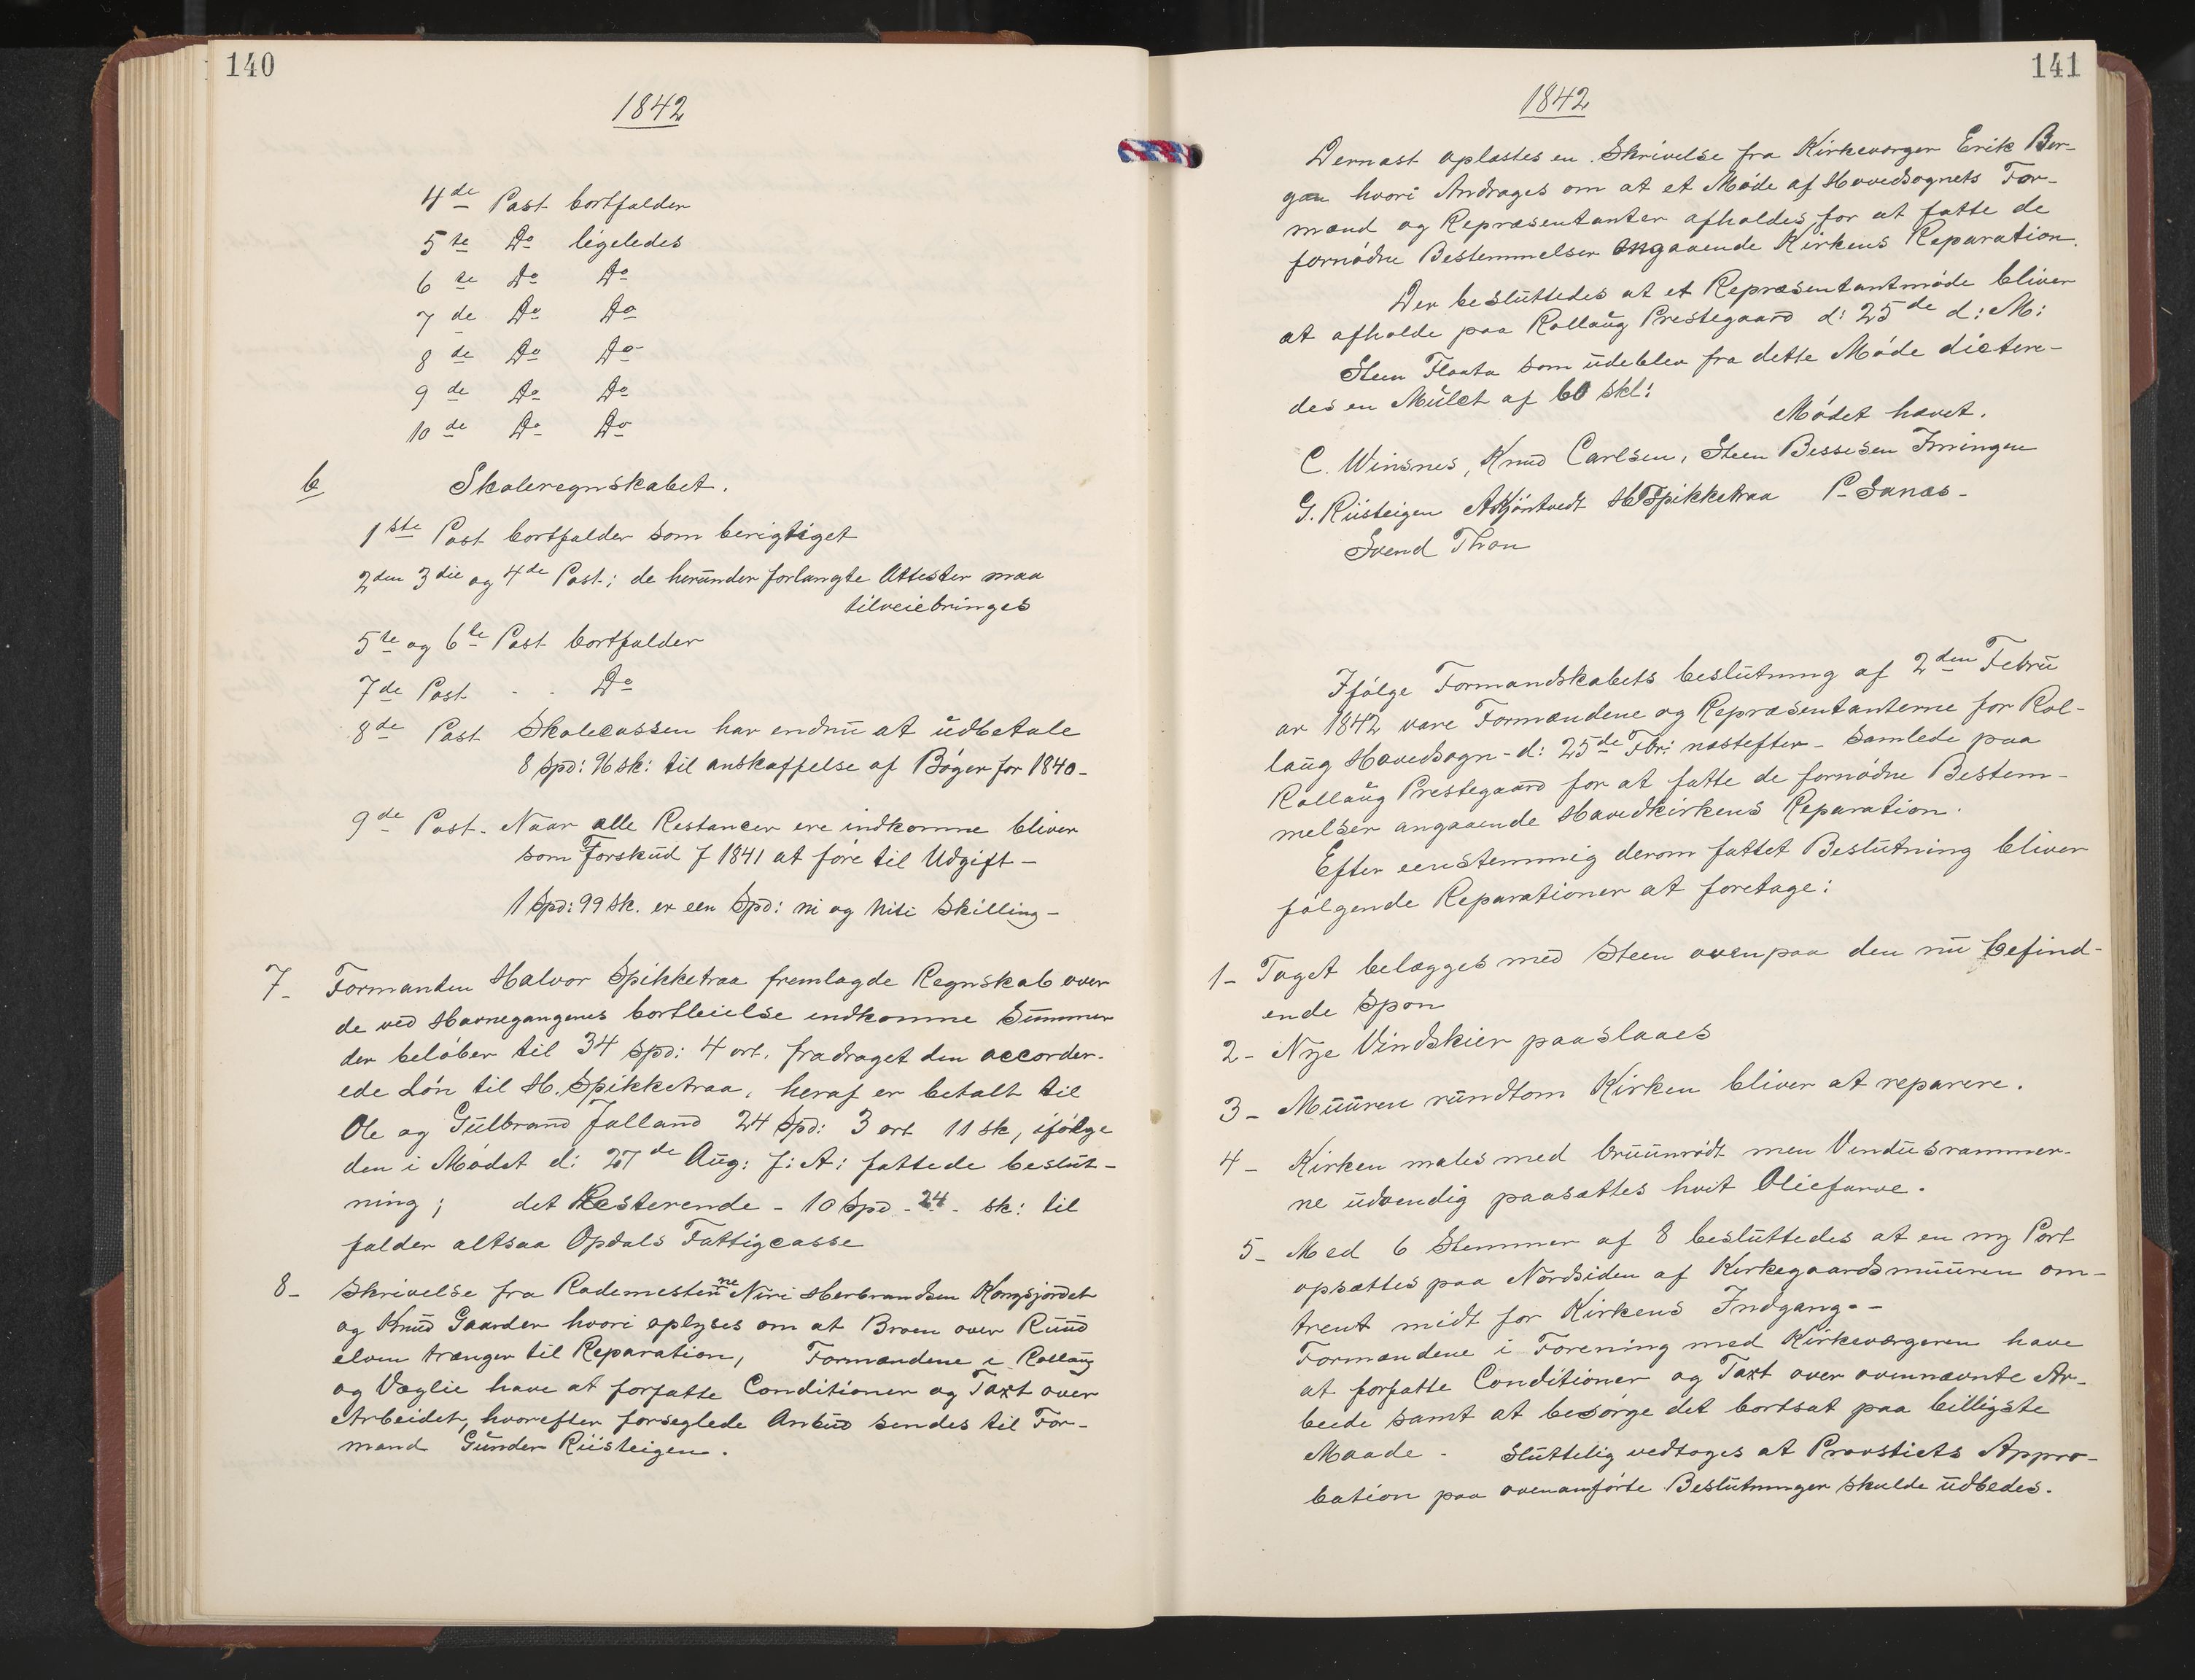 140
1842
4de Post bortfalder
5te Do ligeledes
6te Do Do
7de Do Do
8de Do Do
9de Do Do
10de Do Do
b Skoleregnskabet.
1ste Post bortfalder som berigtiget
2den 3die og 4de Post: de herunder forlangte Attester maa
tilveiebringes
5te og 6te Post bortfalder
7de Post - - Do
8de Post Skolecassen har endnu at udbetale
8 Spd: 96 sk: til anskaffelse af Bøger for 1840-
9de Post. Naar alle Restancer ere indkomne bliver
som Forskud f 1841 at føre til Udgift-
1 Spd: 99 sk. er een Spd: ni og niti Skilling-
7- Formanden Halvor Spikketraa fremlagde Regnskab over
de ved Havnegangenes bortleielse indkomne Summer
der beløber til 34 Spd: 4 ort. fradraget den accorder-
ede Løn til H. Spikketraa, heraf er betalt til
Ole og Gulbrand Jalland 24 Spd: 3 ort 11 sk, ifølge
den i Mødet d: 27de Aug: f: A: fattede beslut-
ning; det Resterende - 10 Spd - 24 - sk: til
falder altsaa Opdals Fattigcasse
8- Skrivelse fra Rodemesterne Niri Herbrandsen Kongsjordet
og Knud Gaarden hvori oplyses om at Broen over Ruud
elven trænger til Reparation, Formændene i Rollaug
og Væglie have at forfatte Conditioner og Taxt over
Arbeidet, hvorefter forseglede Anbud sendes til For-
mand Gunder Riisteigen.
141
1842
Dernæst oplæstes en Skrivelse fra Kirkeværger Erik Ber-
gan hvori Andrages om at et Møde af Hovedsognets For-
mænd og Repræsentanter afholdes for at fatte de
fornødne Bestemmelser angaaende Kirkens Reparation.
Der besluttedes at et Repræsentantmøde bliver
at afholde paa Rollaug Prestegaard d: 25de d: M:
Steen Flaata som udeblev fra dette Møde dictere-
des en Mulct af 60 skl:
Mødet hævet.
C. Winsnes, Knud Carlsen, Steen Bessesen Irringen
G. Riisteigen A Kjøntvedt H Spikketraa P. Sanæs-
Svend Thon
Ifølge Formandskabets beslutning af 2den Febru
ar 1842 vare Formændene og Repræsentanterne for Rol-
laug Hovedsogn - d: 25de Fbr: næstefter - samlede paa
Rollaug Prestegaard for at fatte de fornødne Bestem-
melser angaaende Hovedkirkens Reparation.
Efter eenstemmig derom fattet Beslutning bliver
følgende Reparationer at foretage:
1- Taget belægges med Steen ovenpaa den nu befind-
ende Spon
2- Nye Vindskier paaslaaes
3- Muuren rundtom Kirken bliver at reparere.
4- Kirken males med bruunrødt men Vinduesrammer-
ne udvendig paasættes hvit Oliefarve.
5- Med 6 Stemmer af 8 besluttedes at en ny Port
opsættes paa Nordsiden af Kirkegaardsmuuren om-
trent midt for Kirkens Indgang.-
Formændene i Forening med Kirkeværgeren have
at forfatte Conditioner og Taxt over ovennævnte Ar-
beide samt at besørge det bortsat paa billigste
Maade - Sluttelig vedtoges at Provstiets Appro-
bation paa ovenanførte Beslutninger skulde udbedes.